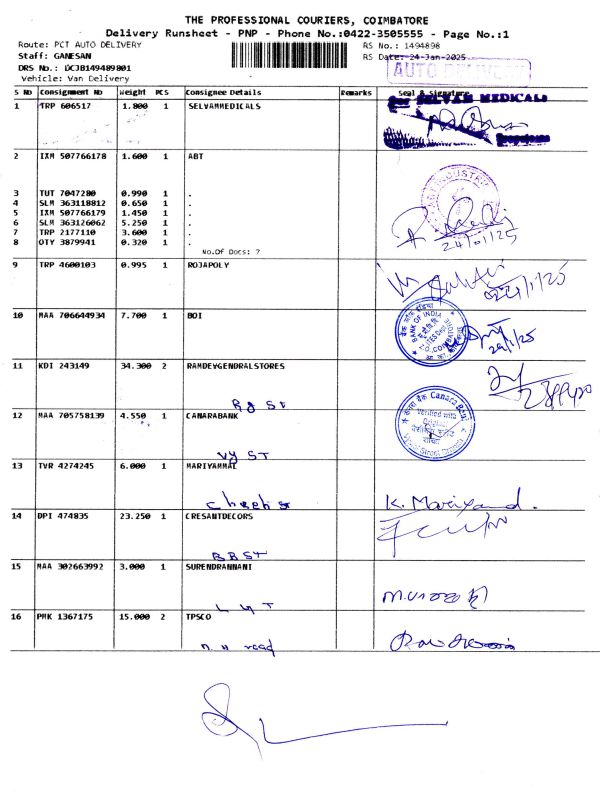 THE PROFESSIONAL COURIERS, COIMBATORE
Delivery Runsheet - PNP - Phone No.:0422-3505555 - Page No.:1
Route: PCT AUTO DELIVERY RS No.: 1494898
Staff: GANESAN RS Date: 24-Jan-2025
DRS No.: DCJB149489801
AUTO DELIVERY
Vehicle: Van Delivery
S NO Consignment NO Weight PCS Consignee Details Remarks Seal & Signature
1 TRP 606517 1.800 1 SELVAMMEDICALS
For SELVAM MEDICALS
Proprietor
2 IXM 507766178 1.600 1 ABT
3 TUT 7047280 0.990 1 .
4 SLM 363118812 0.650 1 .
5 IXM 507766179 1.450 1 .
6 SLM 363126062 5.250 1 .
7 TRP 2177110 3.600 1 .
8 OTY 3879941 0.320 1 .
24/01/25
No.Of Docs: 7
9 TRP 4600103 0.995 1 ROJAPOLY
10 MAA 706644934 7.700 1 BOI
BANK OF INDIA
24/1/25
11 KDI 243149 34.300 2 RAMDEVGENDRALSTORES
Rg St
12 MAA 705758139 4.550 1 CANARABANK
Canara Bank
Verified with
Original
Vy ST
13 TVR 4274245 6.000 1 MARIYAMMAL
K. Mariyand.
14 DPI 474835 23.250 1 CRESANTDECORS
BBST
15 MAA 302663992 3.000 1 SURENDRANNANI
16 PMK 1367175 15.000 2 TPSCO
n H road